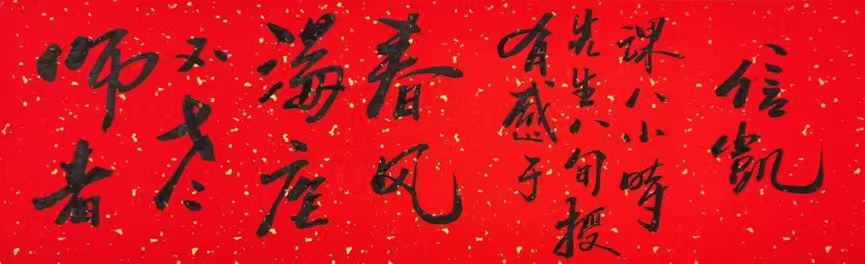 师者
不老
满座
春风
有感于
先生八旬授
课八小时
信凯